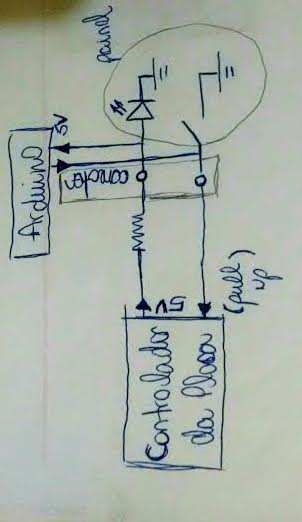 painel
5V
Arduino
conector
5V
(pull
up
Controlador
da Placa